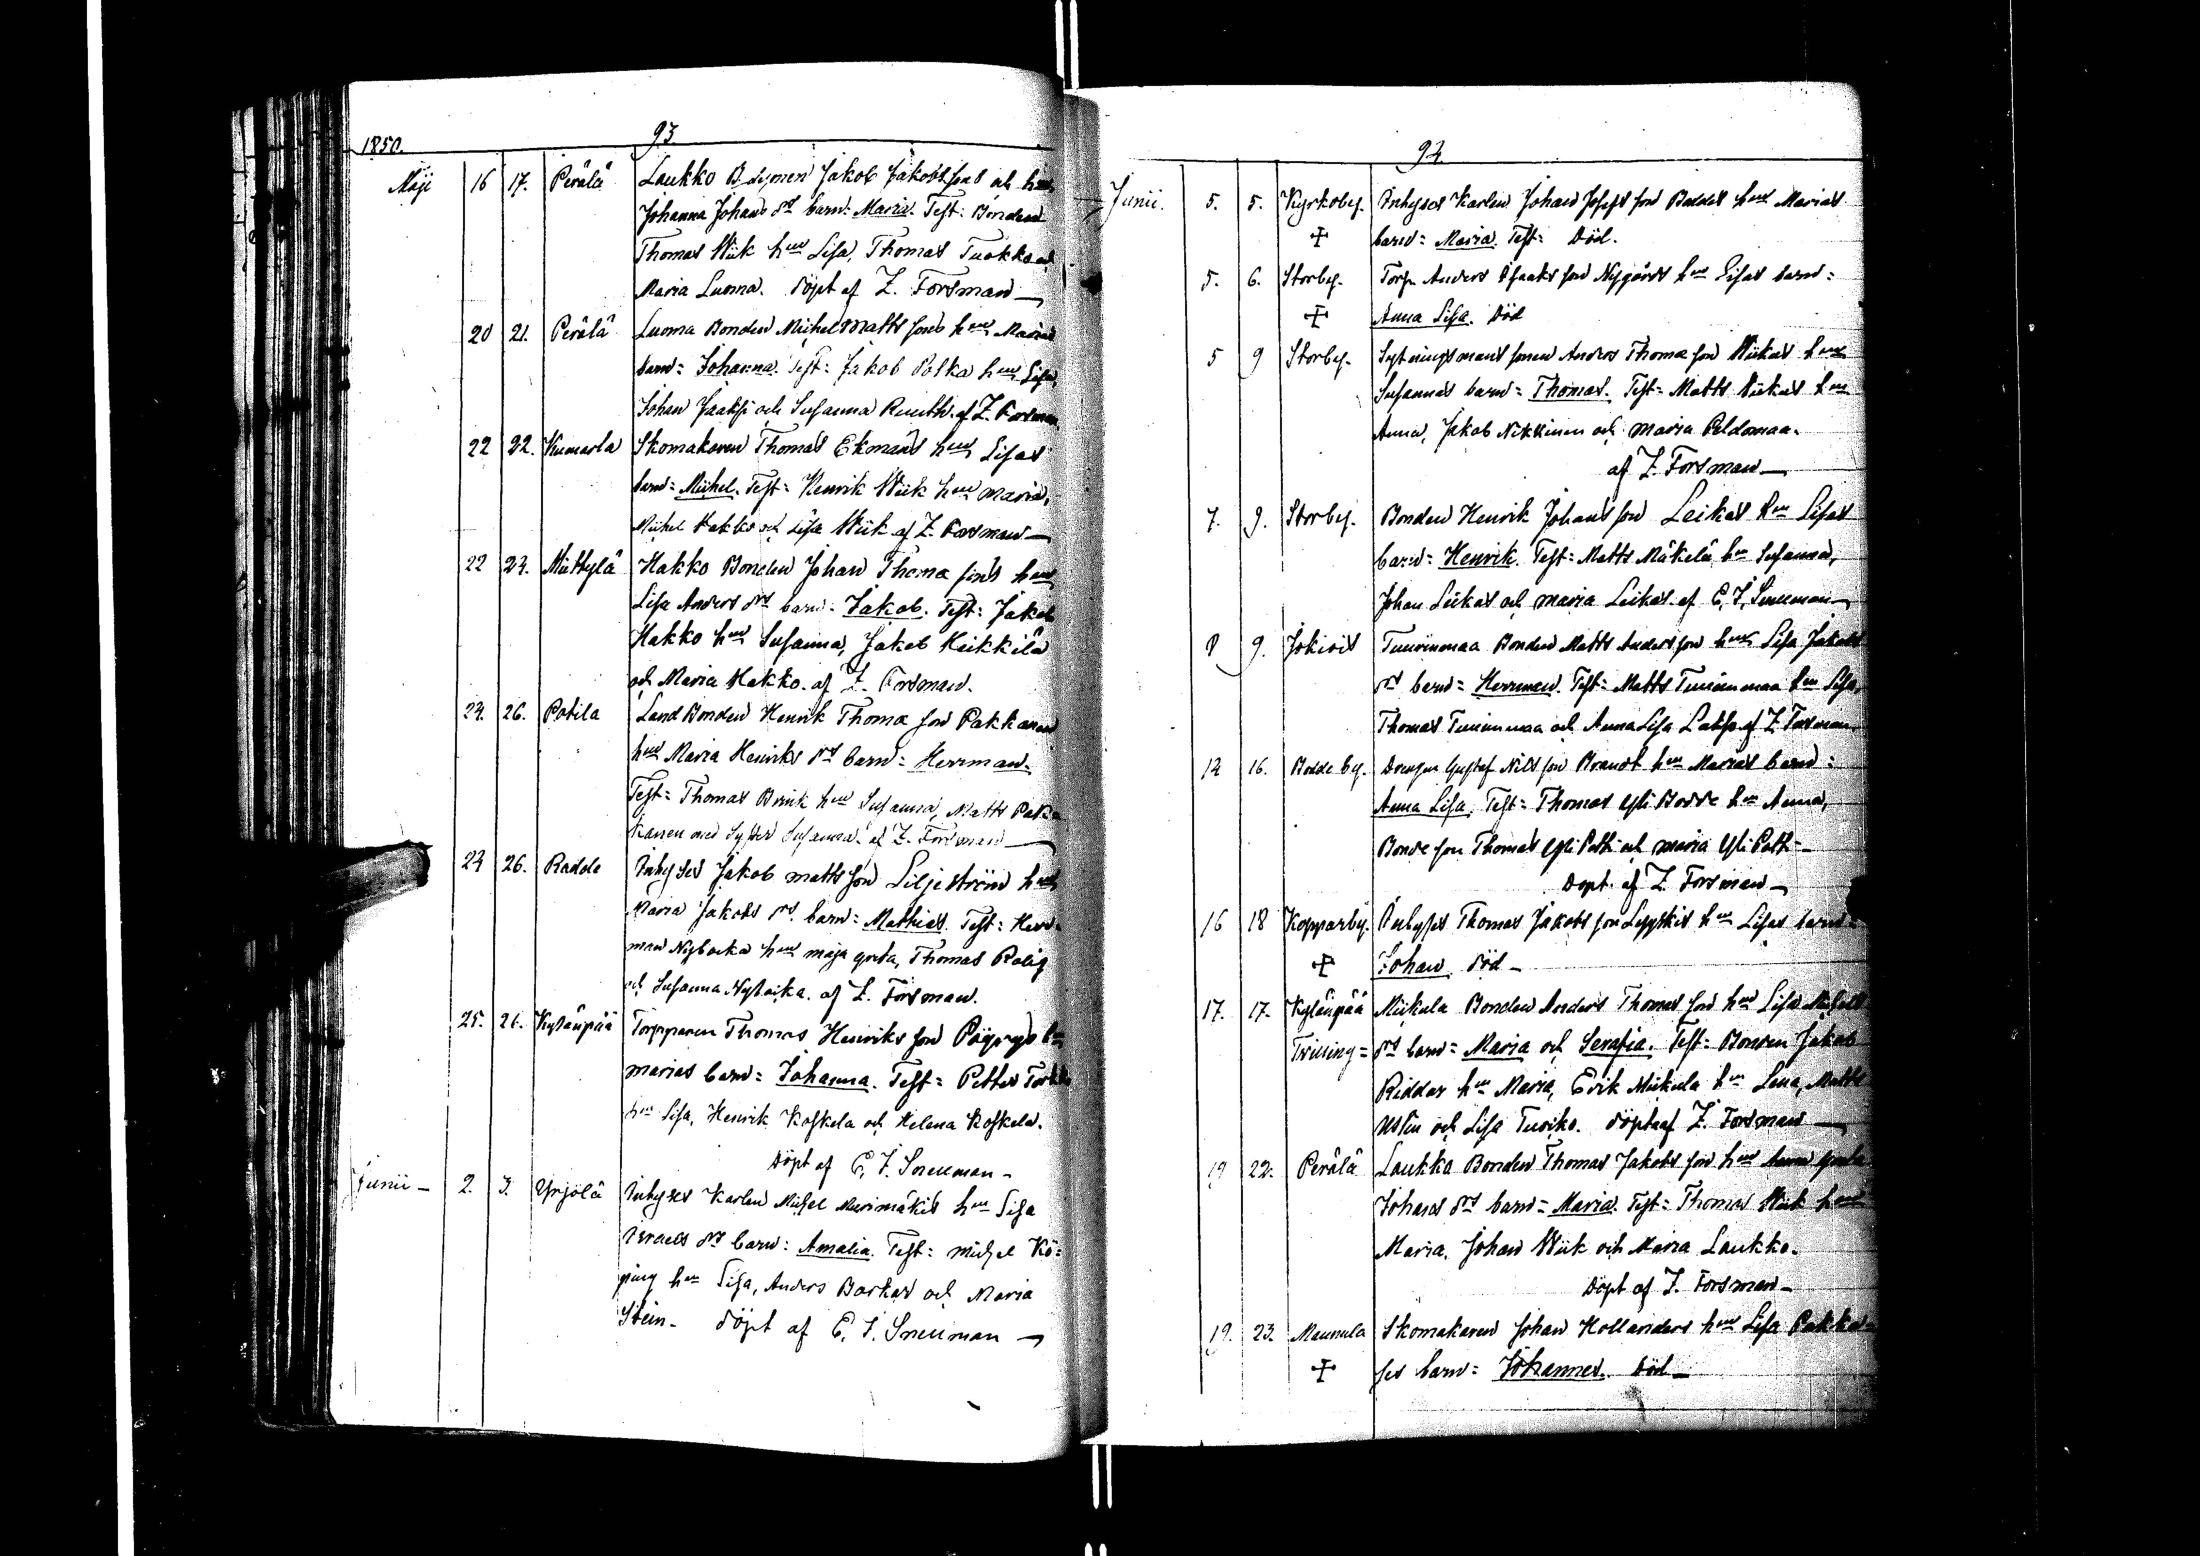 93.
1850.
Maji 16 17. Perälä Laukko B. Jakob Jakobs sons och
Johanna Johans drs barn: Maria. Test: Bonden
Thomas Wiik hu Lisa, Thomas Tuokko och
Maria Luoma. döpt af Z. Forsman
20 21. Perälä Luoma Bonden Michel Matts sons hu Marias
barn: Johanna. Test: Jakob Polka hu Lisa,
Johan Jaaksi och Susanna Ruuth. af Z. Forsman
22 22. Kumarla Skomakaren Thomas Ekmans hu Lisas
barn: Michel. Test: Henrik Wiik hu Maria,
Michel Hakko och Lisa Wiik af Z. Forsman
22 24. Miettylä Hakko Bonden Johan Thoma sons hu
Lisa Anders drs barn: Jakob. Test: Jakob
Hakko hu Susanna, Jakob Heikkilä
och Maria Hakko. af Z. Forsman.
24. 26. Potila Land Bonden Henrik Thoma son Pakkanen
hu Maria Henriks drs barn: Herrman.
Test: Thomas hu Susanna, Matts Pak-
kanen med Syster Susanna. af Z. Forsman
24 26. Radde Inhyses Jakob Matts son Liljeström hu
Maria Jakobs drs. barn: Mathias. Test: Herr-
man Nybacka hu Maja Greta, Thomas Rolig
och Susanna Nybacka. af Z. Forsman.
25. 26. Kyläupää Torpparen Thomas Henriks son Pöyrys hu
Marias barn: Johanna. Test: Petter
hu Lisa, Henrik Koskela och Helena Koskela.
Döpt af E. J. Sneuman
Junii 2. 3. Yrjölä Inhyses Karlen Michel Murimäkis hu Lisa
Israels drs barn: Amalia. Test: Michel Kö-
ping hu Lisa, Anders Barkar och Maria
Stein. döpt af E. J. Sneuman
94
Junii. 5. 5. Kyrkoby. Inhyses Karlen Johan Josefs son Boddes hu Marias
barn: Maria. Test: Död.
5. 6. Storby. Torp. Anders Isaaks son Nygårds hu Lisas barn:
Anna Lisa. Död
5 9 Storby. Sytningsmans sonen Anders Thoma son Wiikas hu
Susannas barn: Thomas. Test: Matts Wiikas hu
Anna, Jakob Nikkinen och Maria Peldomaa.
af Z. Forsman
7. 9. Storby. Bonden Henrik Johans son Leikas hu Lisas
barn: Henrik. Test: Matts Mäkelä hu Susanna,
Johan Leikas och Maria Leikas. af E. J. Sneuman
8 9. Jokivis Tuurinmaa Bonden Matts Anders son hu Lisa Jakobs
drs barn: Herrman. Test: Matts Tuurinmaa hu Lisa,
Thomas Tuurinmaa och Anna Lisa af Z. Forsman.
14 16. Bodde by. Drengen Gustaf Nils son Brandt hu Marias barn:
Anna Lisa. Test: Thomas Yli Bodde hu Anna,
Bonde son Thomas Yli Poth och Maria Yli Poth
Döpt af Z. Forsman
16 18 Kopparby. Inhyses Thomas Jakobs son Leppikis hu Lisas barn
Johan. död
17. 17. Kyläupää Miekula Bonden Anders Thomas son hu Lisa Michels
Trilling= drs barn: Maria och Serafia. Test: Bonden Jakob
Riddar hu Maria, Erik Miekula hu Lena, Matts
och Lisa Turiko. döpt af Z. Forsman
19 22. Perälä Laukko Bonden Thomas Jakobs son hu Anna Greta
Johans drs barn: Maria. Test: Thomas Wiik hu
Maria, Johan Wiik och Maria Laukko.
Döpt af Z. Forsman
19. 23. Maunula Skomakaren Johan Hollanders hu Lisa
ses barn: Johannes. Död